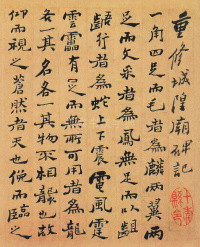 重修城隍廟碑記
一角四足而毛者為麟兩翼兩
足而文采者為鳳無足而以齟
齬行者為蛇上下震電風霆
雲靁有足而無所可用者為龍
各一其名各一其物不相襲也故
仰而視之蒼然者天也俯而臨之